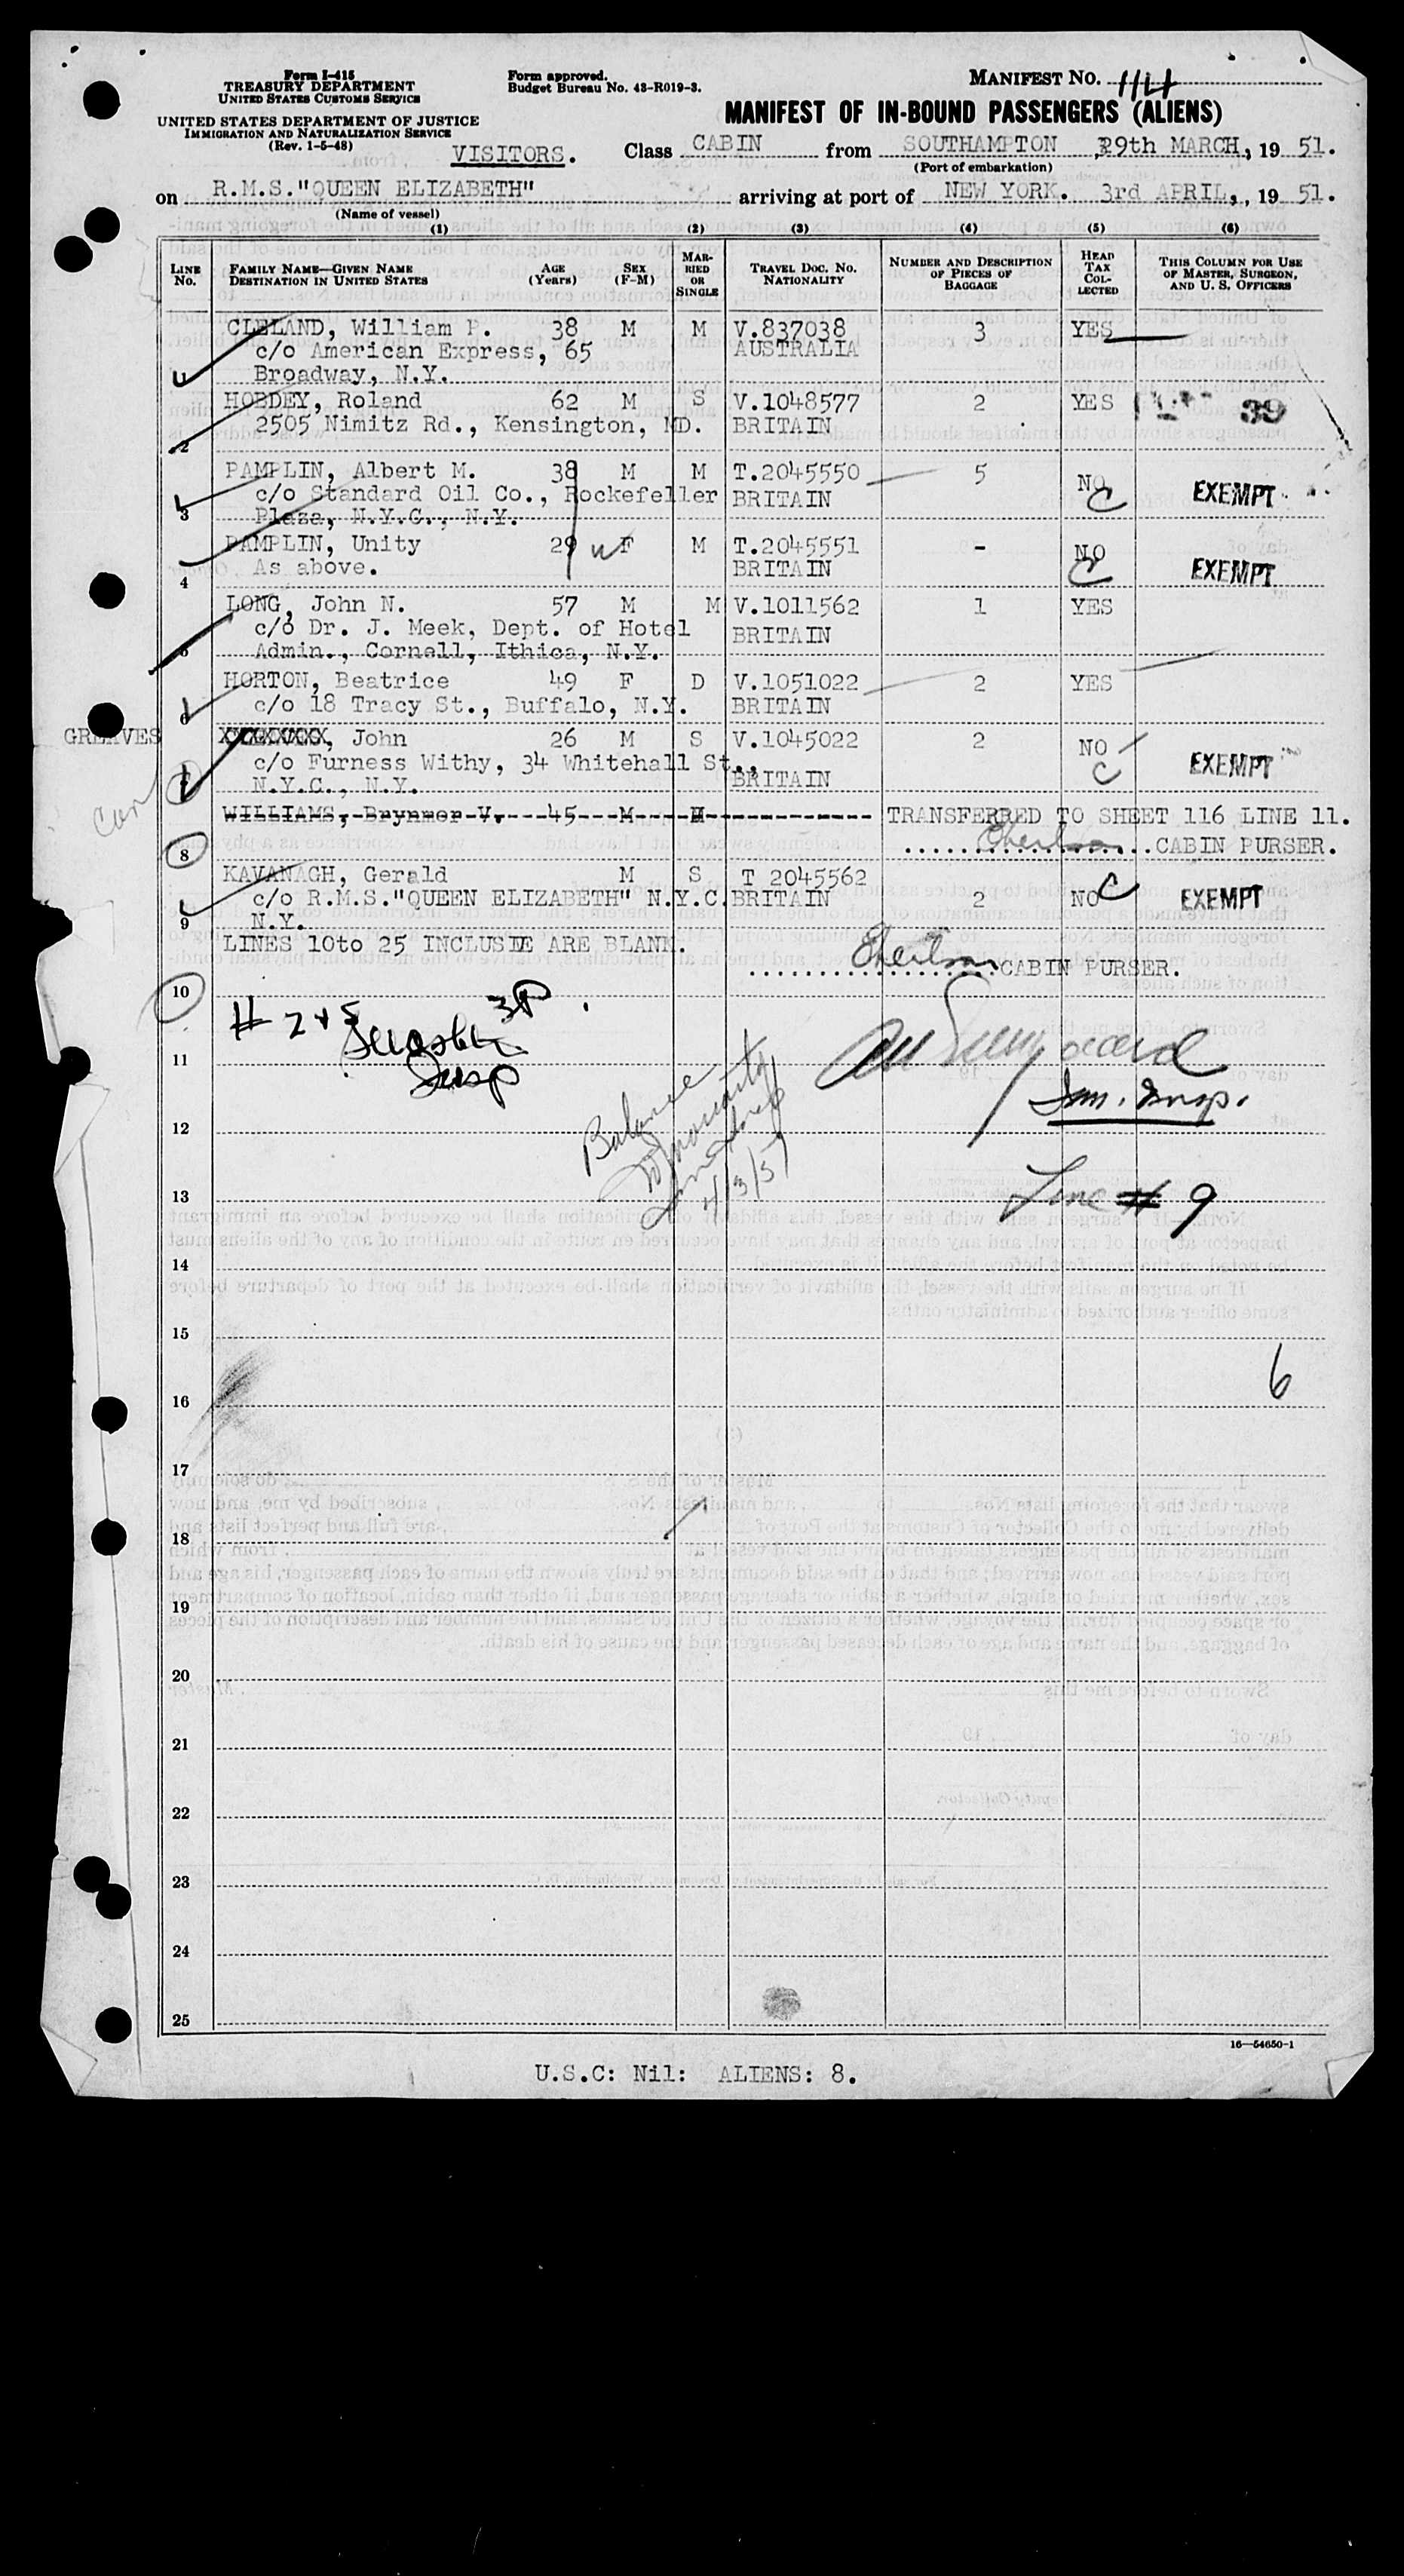 Form I-415
TREASURY DEPARTMENT
UNITED STATES CUSTOMS SERVICE
UNITED STATES DEPARTMENT OF JUSTICE
IMMIGRATION AND NATURALIZATION SERVICE
(Rev. 1-5-48)
Form approved.
Budget Bureau No. 43-R019-3.
MANIFEST NO. 114
MANIFEST OF IN-BOUND PASSENGERS (ALIENS)
VISITORS. Class CABIN from SOUTHAMPTON 29th MARCH, 19 51.
(Port of embarkation)
on R.M.S."QUEEN ELIZABETH" arriving at port of NEW YORK. 3rd APRIL,, 19 51.
(Name of vessel)
(1) (2) (3) (4) (5) (6)
LINE No. FAMILY NAME—GIVEN NAME DESTINATION IN UNITED STATES AGE (Years) SEX (F-M) MARRIED OR SINGLE TRAVEL DOC. NO. NATIONALITY NUMBER AND DESCRIPTION OF PIECES OF BAGGAGE HEAD TAX COLLECTED THIS COLUMN FOR USE OF MASTER, SURGEON, AND U. S. OFFICERS
CLELAND, William P. 38 M M V.837038 3 YES
c/o American Express, 65 AUSTRALIA
1 Broadway, N.Y.
HOBDEY, Roland 62 M S V.1048577 2 YES 39
2505 Nimitz Rd., Kensington, MD. BRITAIN
2
PAMPLIN, Albert M. 38 M M T.2045550 5 NO C EXEMPT
c/o Standard Oil Co., Rockefeller BRITAIN
3 Plaza, N.Y.C., N.Y.
PAMPLIN, Unity 29 F M T.2045551 - NO C EXEMPT
As above. BRITAIN
4
LONG, John N. 57 M M V.1011562 1 YES
c/o Dr. J. Meek, Dept. of Hotel BRITAIN
5 Admin., Cornell, Ithica, N.Y.
HORTON, Beatrice 49 F D V.1051022 2 YES
6 c/o 18 Tracy St., Buffalo, N.Y. BRITAIN
GREAVES , John 26 M S V.1045022 2 NO C EXEMPT
c/o Furness Withy, 34 Whitehall St., BRITAIN
7 N.Y.C., N.Y.
WILLIAMS, Brynmor V. 45 M M TRANSFERRED TO SHEET 116 LINE 11.
8 CABIN PURSER.
KAVANAGH, Gerald M S T 2045562
c/o R.M.S."QUEEN ELIZABETH" N.Y.C. BRITAIN 2 NO C EXEMPT
9 N.Y.
LINES 10to 25 INCLUSIVE ARE BLANK.
CABIN PURSER.
10
11
Insp
Imm. Insp.
Balance
12
4/3/51
13
Line # 9
14
15
6
16
17
18
19
20
21
22
23
24
25
16—54650-1
U.S.C: Nil: ALIENS: 8.